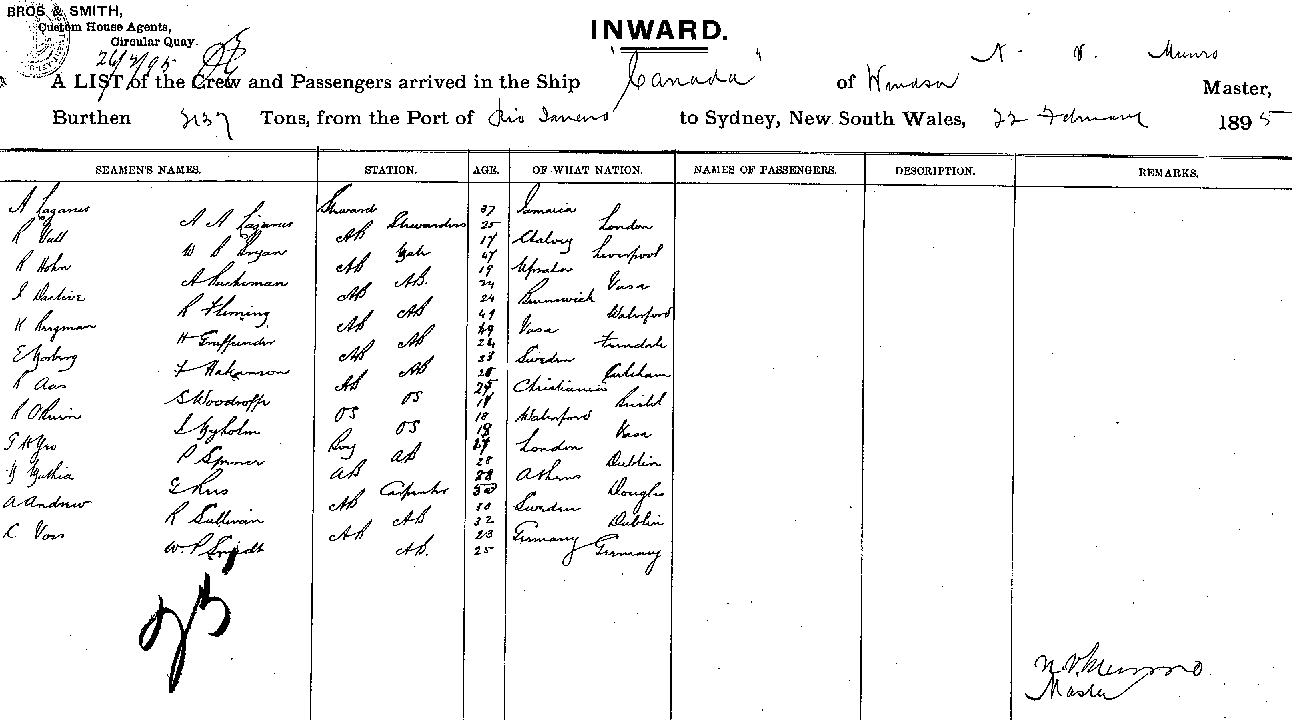 BROS & SMITH,
Custom House Agents,
Circular Quay.
26/2/95
INWARD.
A LIST of the Crew and Passengers arrived in the Ship "Canada" of Windsor N. V. Munro Master,
Burthen 2137 Tons, from the Port of Rio Janeiro to Sydney, New South Wales, 22 February 1895
SEAMEN'S NAMES. STATION. AGE. OF WHAT NATION. NAMES OF PASSENGERS. DESCRIPTION. REMARKS.
A Lazarus Steward 37 Jamaica
A A Lazarus Stewardess 25 London
R AB 17
W B Bryan 47 Liverpool
R Hohn AB 19
A AB. 24 Vasa
AB 24 Brunswick
R Fleming AB 49 Waterford
K Bergman AB 29 Vasa
H AB 24
E AB 33 Sweden
F Hakanson AB 28
R Aas AB 25 Christiania
S Woodroffe OS 19 Bristol
R OS 18 Waterford
OS 18 Vasa
Boy London
P AB 28 Dublin
AB 28 Athens
Carpenter Douglas
A Andrew AB 30 Sweden
R Sullivan AB 32 Dublin
C Voss AB 23 Germany
W. P AB. 25 Germany
25
N. V. Munro
Master